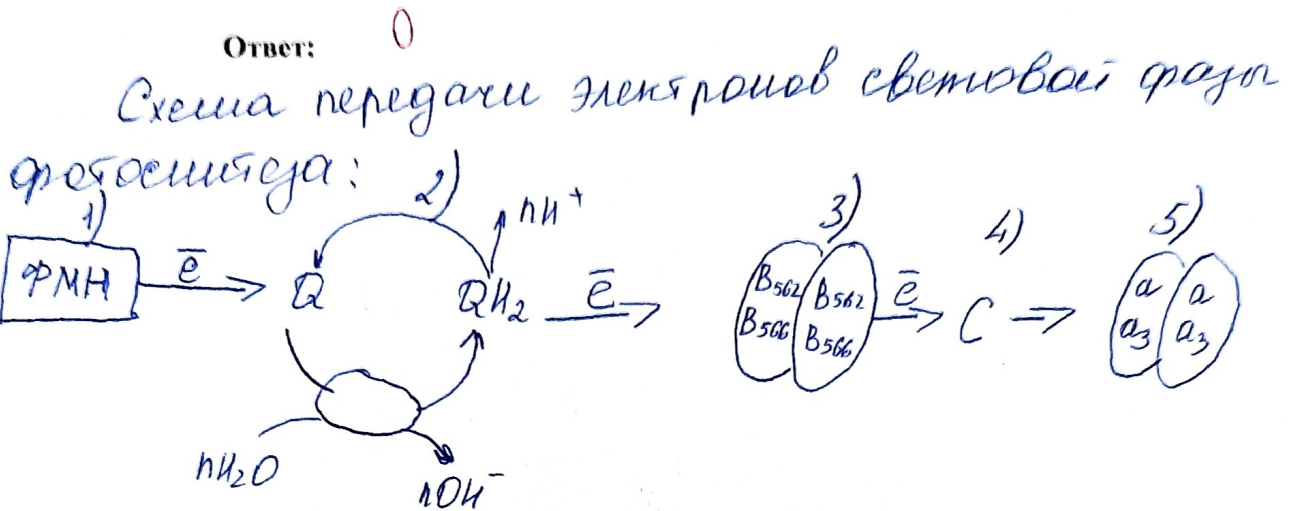 Ответ: 0
Схема передачи электронов световой фазы
фотосинтеза:
1) 2) 3) 4) 5)
nH⁺
ФМН ē Q QH₂ ē B₅₆₂ B₅₆₂ ē C a a
B₅₆₆ B₅₆₆ a₃ a₃
nH₂O
nOH⁻